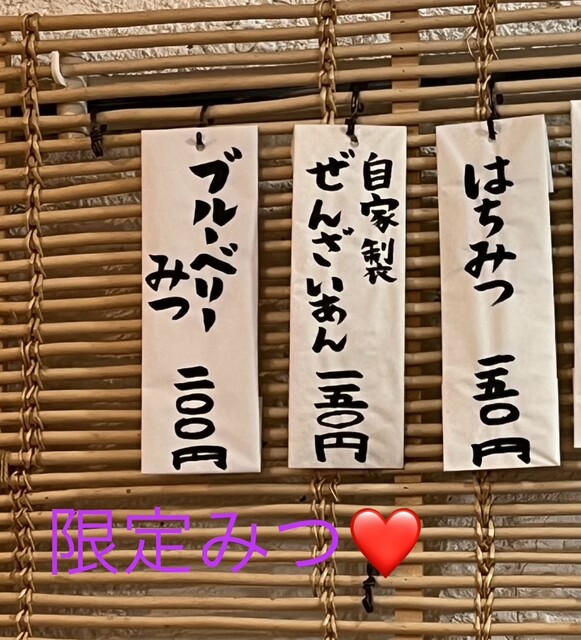 はちみつ 一五〇円
自家製
ぜんざいあん 一五〇円
ブルーベリー
みつ 二〇〇円
限定みつ❤️